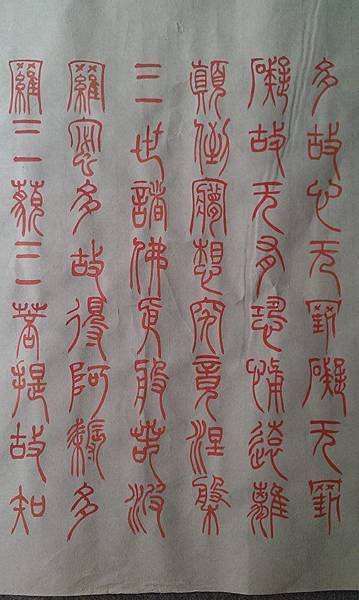 多故心无罣礙无罣
礙故无有恐怖遠離
顛倒夢想究竟涅槃
三世諸佛依般若波
羅蜜多故得阿耨多
羅三藐三菩提故知